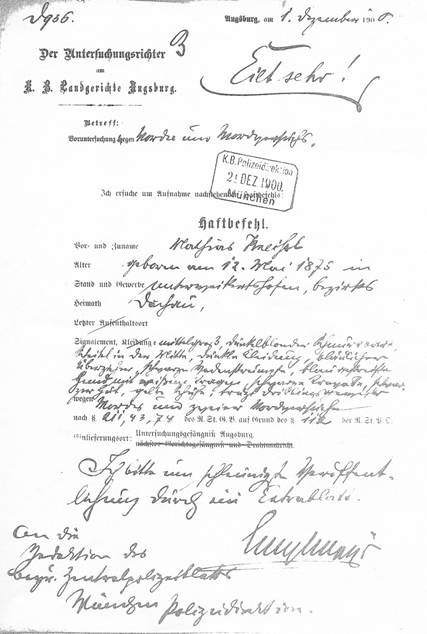 Augsburg, am 1. Dezember 1900.
3
Der Untersuchungsrichter
am
K. B. Landgerichte Augsburg.
Eilt sehr!
Betreff:
Voruntersuchung gegen
K.B. Polizeidirektion
2. DEZ. 1900.
München
Ich ersuche um Aufnahme nachstehenden Haftbefehls:
Haftbefehl.
Vor- und Zuname Mathias Kneißl
Alter geboren am 12. Mai 1875 in
Stand und Gewerbe Unterweikertshofen, Bezirks
Heimath Dachau,
Letzter Aufenthaltsort
Signalement, Kleidung: mittelgroß, dunkelblonder Schnurrbart
Scheitel in der Mitte, dunkle Kleidung,
wegen Mordes und zweier Mordversuche
nach § 211, 43, 74 des R. St. G. B. auf Grund des § 112 der R. St. P. O.
Einlieferungsort: Untersuchungsgefängniß Augsburg.
Ich bitte um schleunigste Veröffent-
lichung durch ein Extrablatt.
An die
Redaktion des
bayr. Zentralpolizeiblatts
München Polizeidirektion.